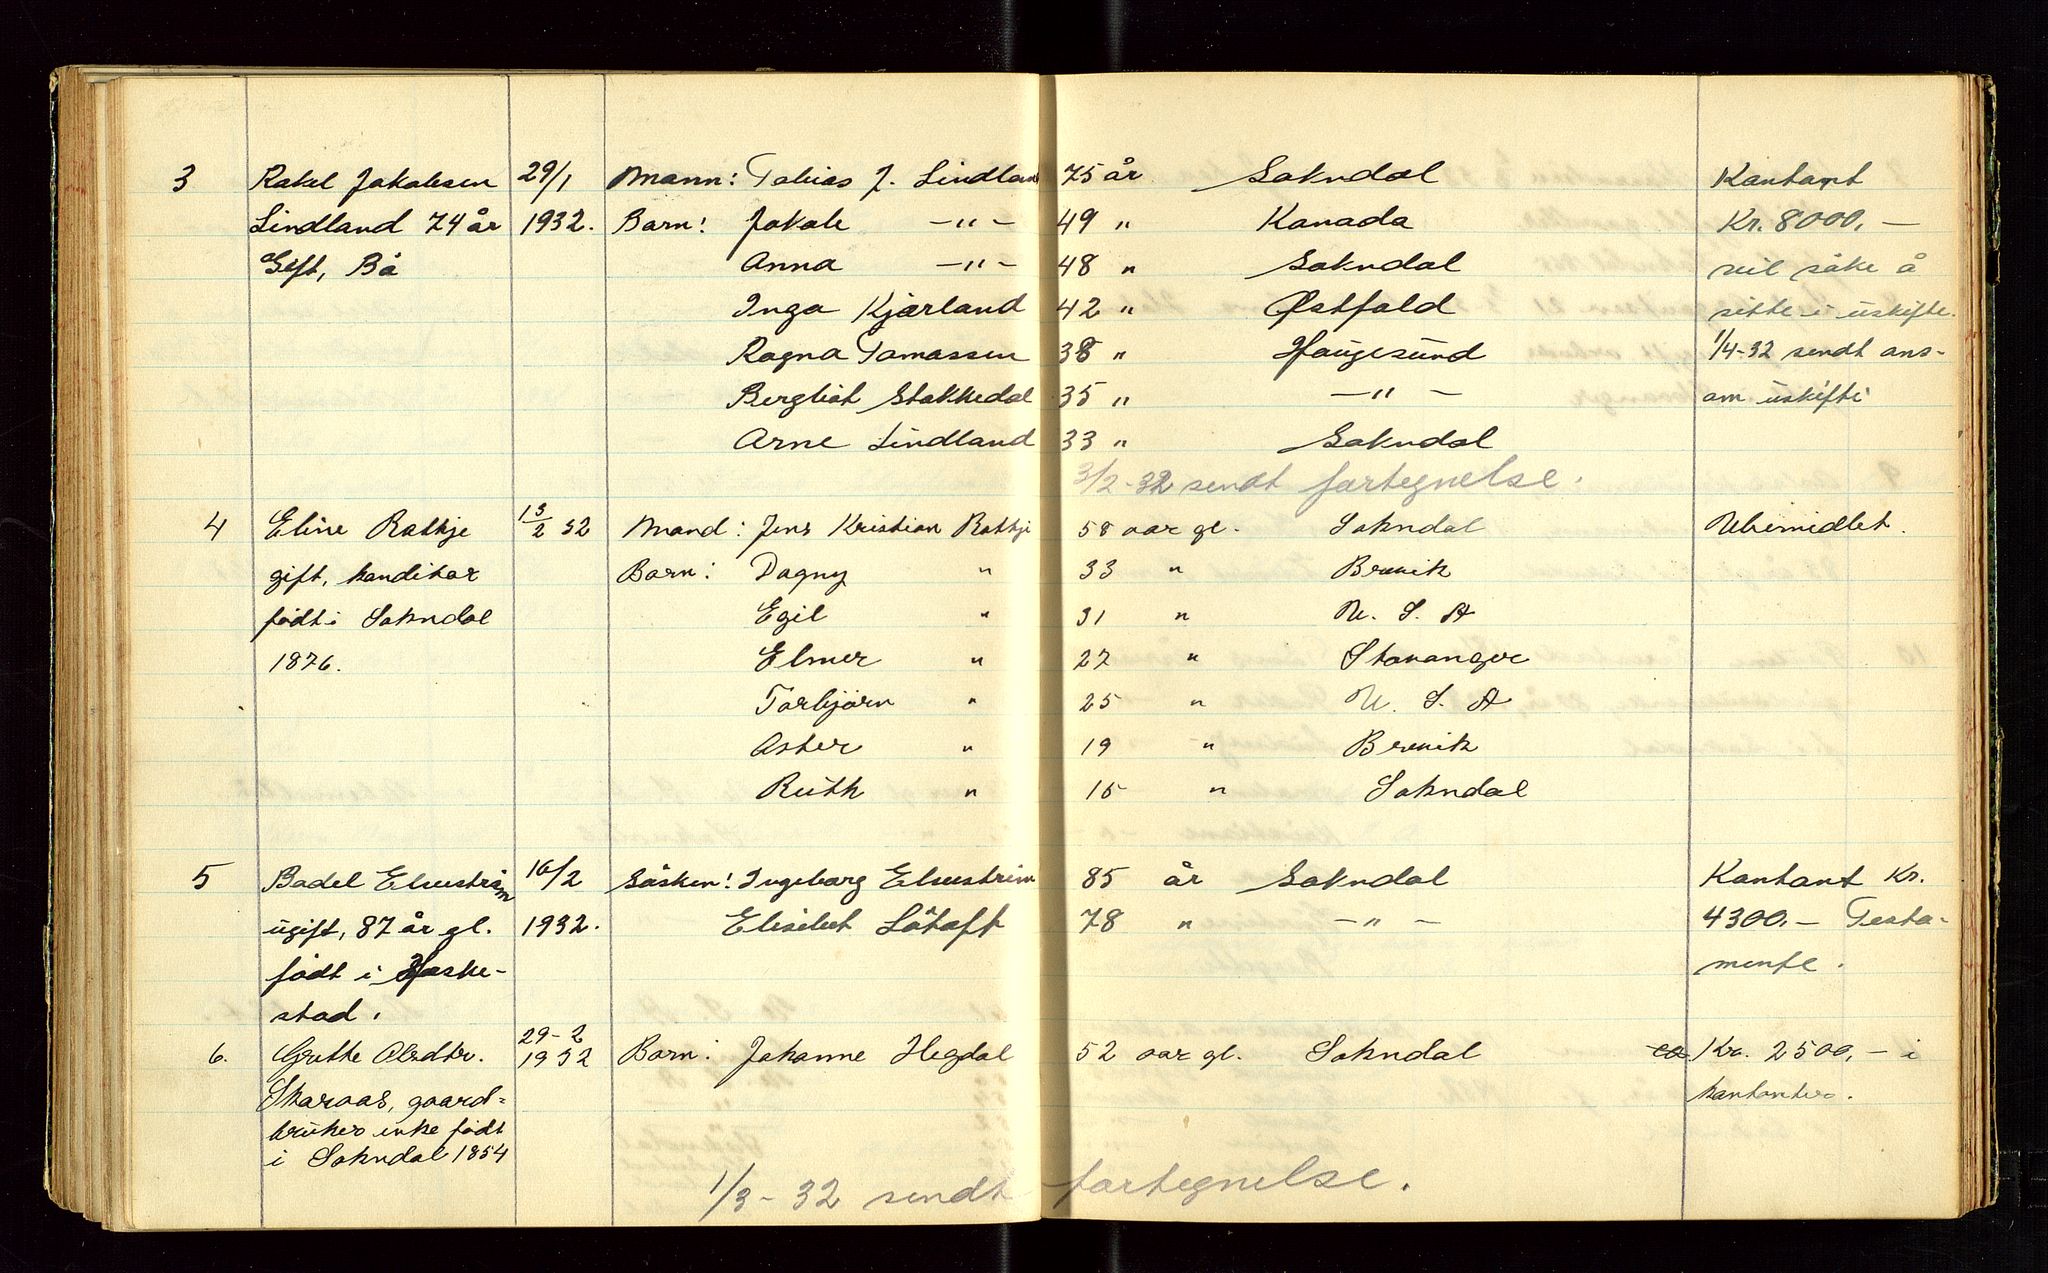 3 Rakel Jakobsen 29/1 Mann: Tobias J. Lindland 75 år Sokndal Kontant
Lindland 74 år 1932. Barn: Jakob -"- 49 " Kanada Kr. 8000,-
Gift, Bö Anna -"- 48 " Sokndal vil söke å
Inga Kjærland 42 " Østfold sitte i uskifte.
Ragna Tomassen 38 " Haugesund 1/4-32 sendt ans-
Bergliot Stokkedal 35 " -"- om uskifte
Arne Lindland 33 " Sokndal
3/2-32 sendt fortegnelse.
4 Eline Rotkje 13/2 32 Mand: Jens Kristian Rotkje 58 aar gl. Sokndal Ubemidlet.
gift, konditor Barn: Dagny " 33 " Brevik
født i Sokndal Egil " 31 " U. S. A
1876. Elmer " 27 " Stavanger
Torbjörn " 25 " U. S. A
Aster " 19 " Brevik
Ruth " 15 " Sokndal
5 Bodel Elvestrøm 16/2 Søsken: Ingeborg Elvestrøm 85 år Sokndal Kontant Kr.
ugift, 87 år gl. 1932. Elisabet Låtoft 78 " -"- 4300,- Testa-
født i Heske- mente.
stad.
6. Grethe Olsdtr. 29-2 1932 Barn: Johanne Hegdal 52 aar gl. Sokndal ca Kr. 2500,- i
Skaraas, gaard- kontanter.
bruker enke født
i Sokndal 1854
1/3-32 sendt fortegnelse.